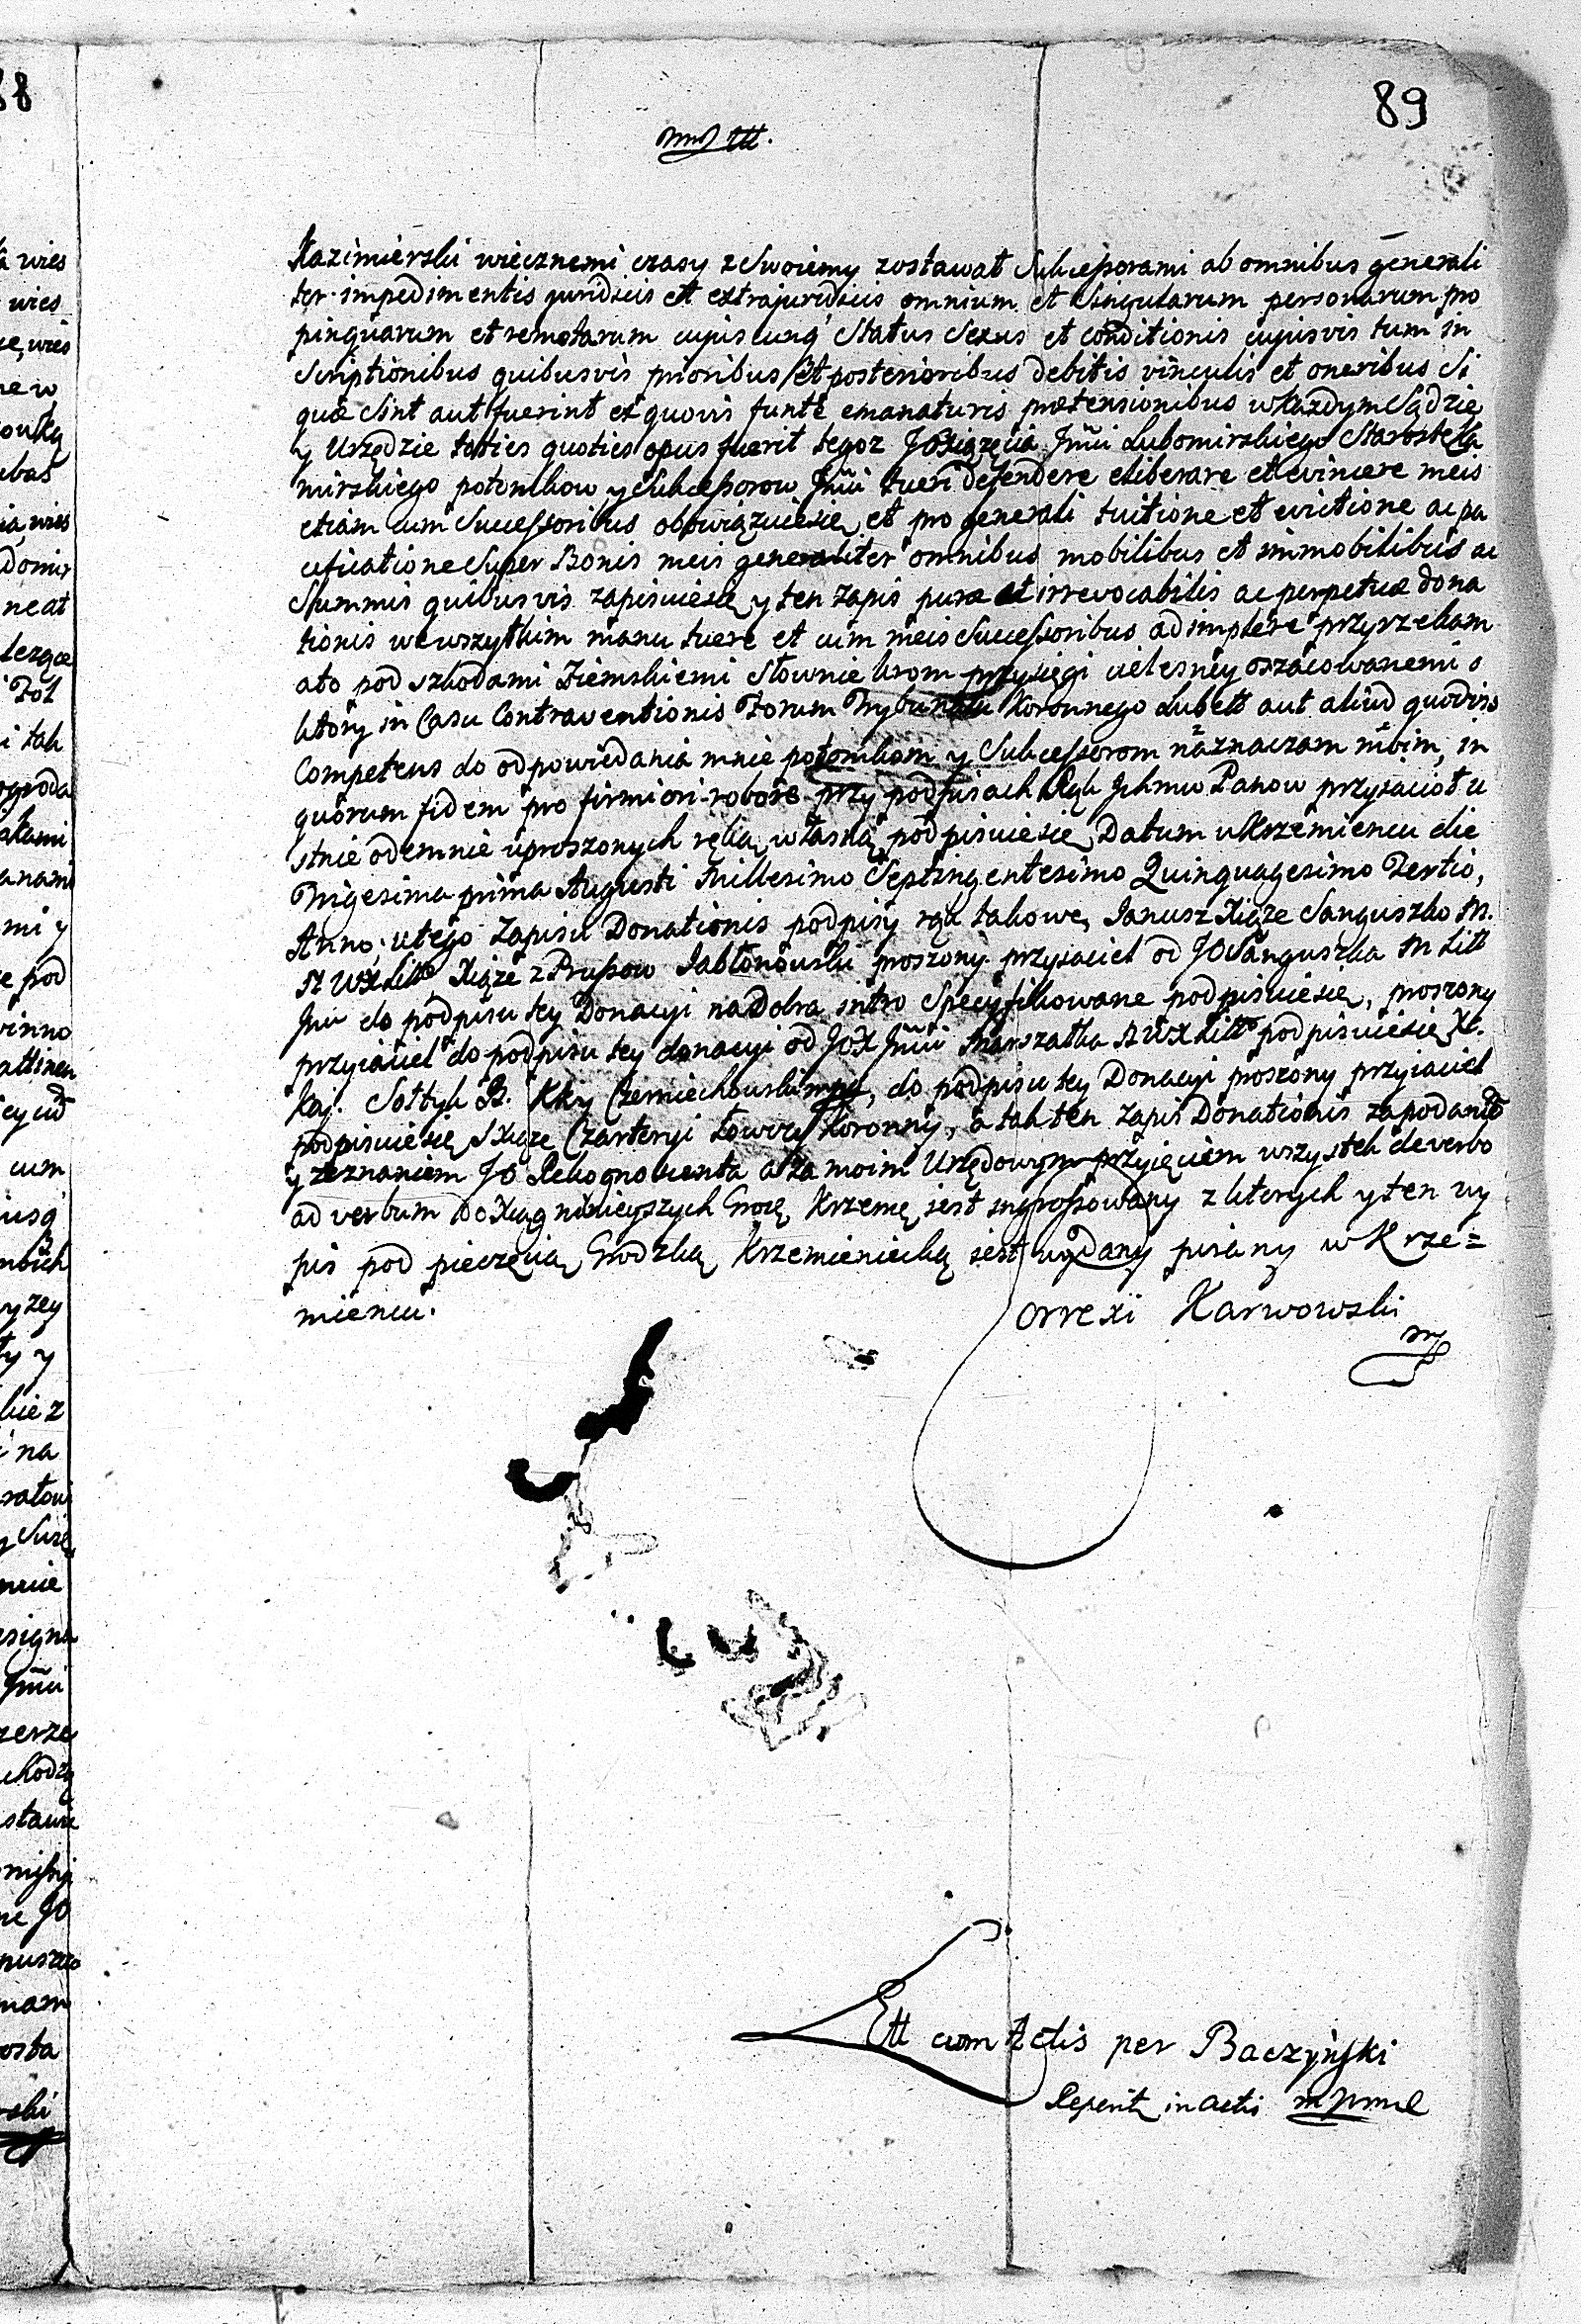 89
Kazimierski wiecznemi czasy z Swoiemy zostawał Sukcessorami ab omnibus generali
ter impedimentis juridicis et extrajuridicis omnium et Singularum personarum pro
pinquarum et remotarum cujuscunq Status Sexus et conditionis cujusvis tum in
Scriptionibus quibusvis prioribus et posterioribus debitis vinculis et oneribus Si
quæ Sint aut fuerint ex quovis funte emanaturis prætensionibus w każdym Sądzie
y Urzędzie toties quoties opus fuerit tegoż JOXiążęcia Jmći Lubomirskiego Starosty Ka
mirskiego potomkow y Sukcessorow Jmći tueri defendere eliberare et evincere meis
etiam cum Successoribus obowiązuiesie et pro generali tuitione et evictione ac pa
cificatione Super Bonis meis generaliter omnibus mobilibus et immobilibus ac
Summis quibusvis zapisuiesię y ten zapis puræ et irrevocabilis ac perpetuæ dona
tionis we wszytkim manu tuere et cum meis Successoribus adimplere przyrzekam
a to pod szkodami Ziemskiemi Słownie krom przysięgi cielesney oszacowanemi o
ktory in Casu Contraventionis Forum Trybunału Koronnego Lubell aut aliud quodvis
Competens do odpowiedania mnie potomkom y Sukcessorom naznaczam moim, in
quorum fidem pro firmiori robore przy podpisach Rąk Ichmw Panow przyiacioł u
stnie odemnie uproszonych ręką własną podpisuiesię Datum w Krzemiencu die
Trigesima prima Augusti Millesimo Septingentesimo Quinquagesimo Tertio,
Anno, u tego Zapisu Donationis podpisy rąk takowe, Janusz Xiąże Sanguszko M.
N WX Litt Xiąże z Prussow Jabłonowski proszony przyiaciel od JOSanguszka M Litt
Jmći do podpisu tey Donacyi na Dobra intro Specyfikowane podpisuiesię, proszony
przyiaciel do podpisu tey donacyi od JOX Jmći Marszałka N WX Litt podpisuiesię X.
Kaj. Sołtyk B. Kky Czerniechowski mpp, do podpisu tey Donacyi proszony przyiaciel
podpisuiesię S Xiąże Czartoryi Łowczy Koronny, a tak ten Zapis Donationis za podaniem
y zeznaniem JO Rekognoscenta a za moim Urzędowym przyięciem wszystek de verbo
ad verbum do Xiąg ninieyszych Grodz Krzeme iest ingrossowany z ktorych y ten wy
pis pod pieczęcią Grodzką Krzemieniecką iest wydany pisany w Krze=
miencu.
Correxi Karwowski
mp
Ltt cum Actis per Baczyński
in actis